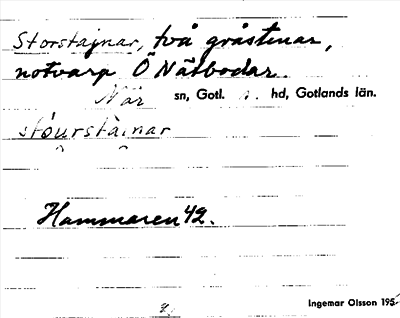 Storstajnar, två gråstenar,
notvarp Ö Nätbodar.
När sn, Gotl. s. hd, Gotlands län.
stourstainar
Hammaren 42.
Ingemar Olsson 195